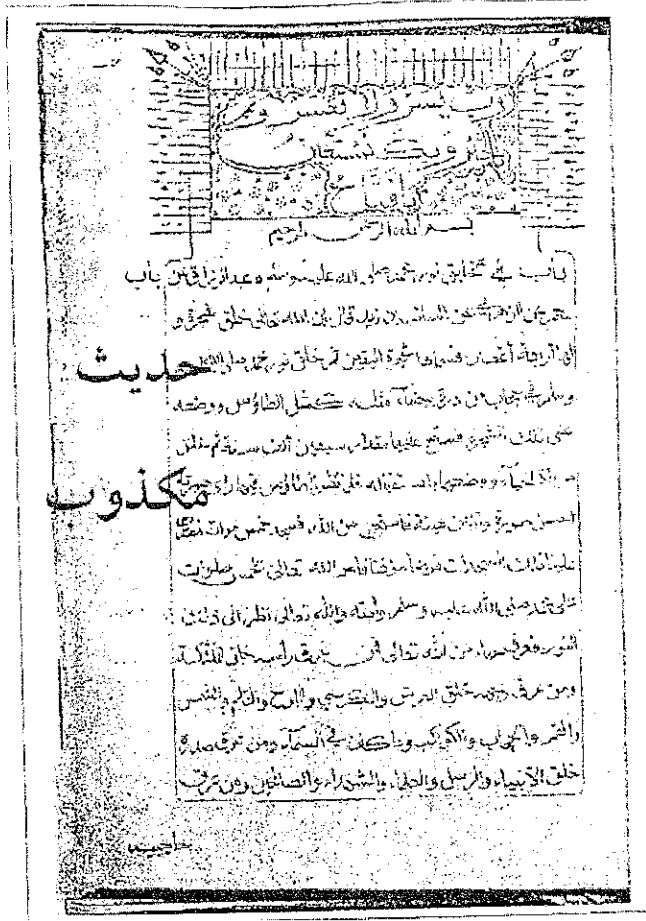 رب يسر ولا تعسر وتمم
بالخير وبك نستعين
يا فتاح
بسم الله الرحمن الرحيم
باب في تخليق نور محمد صلى الله عليه وسلم عبد الرزاق عن باب
معمر عن الزهري عن السائب بن زيد قال إن الله تعالى خلق شجرة و
لها أربعة أغصان فسماها شجرة اليقين ثم خلق نور محمد صلى الله
حديث
وسلم في حجاب من درة بيضاء مثله كمثل الطاؤس ووضعه
على تلك الشجرة فسبح عليها مقدار سبعين ألف سنة ثم خلق
مرآة الحياء ووضعها باستقباله فلما نظر الطاؤس فيها رأى صورته
مكذوب
أحسن صورة وأزين هيئة فاستحي من الله فسجد خمس مرات فصارت
علينا تلك السجدات فرضا مؤقتا فأمر الله تعالى بخمس صلوات
على محمد صلى الله عليه وسلم وأمته والله تعالى نظر إلى ذلك
النور فعرق حياء من الله تعالى فمن عرق رأسه خلق الملئكة
ومن عرق وجهه خلق العرش والكرسي واللوح والقلم والشمس
والقمر والحجاب والكواكب وما كان في السماء ومن عرق صدره
خلق الأنبياء والرسل والعلماء والشهداء والصالحين ومن عرق
حاجبيه